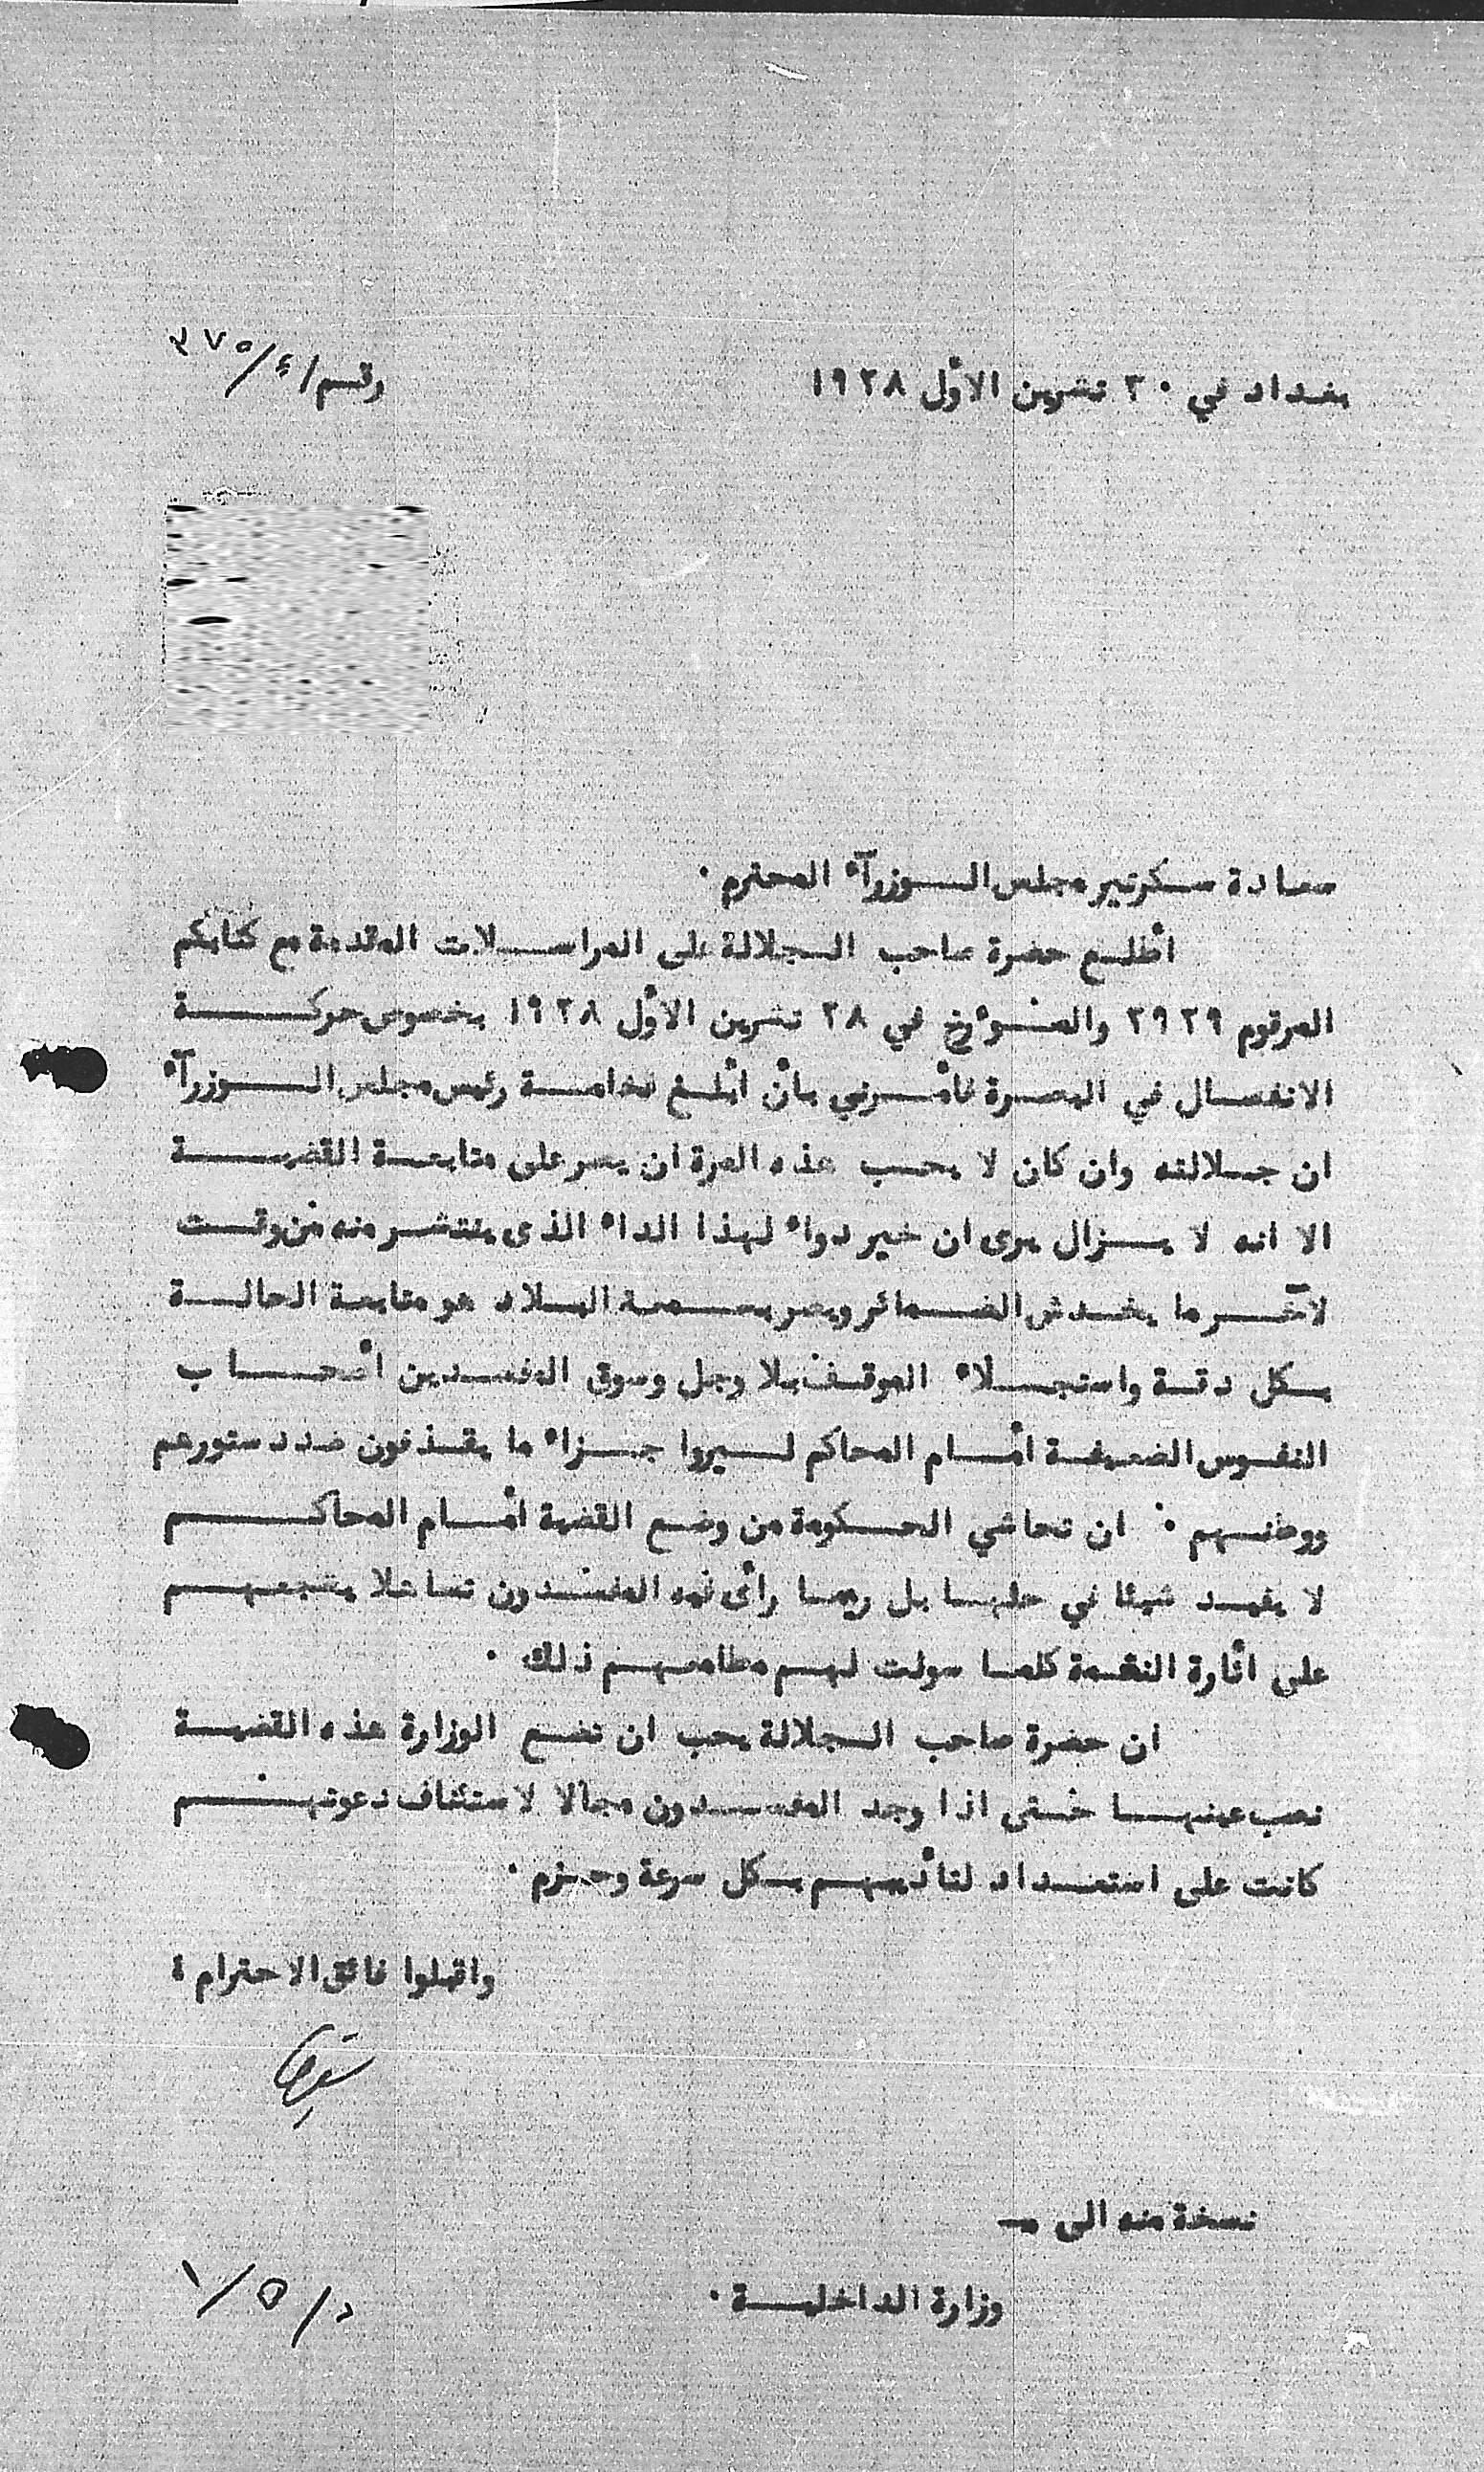 بغداد في ٣٠ تشرين الأول ١٩٢٨
رقم/ ٤/ ٣٧٥
سعادة سكرتير مجلس الوزرآء المحترم ٠
أطلع حضرة صاحب الجلالة على المراسلات المقدمة مع كتابكم
المرقوم ٢٩٢٩ والمؤرخ في ٢٨ تشرين الأول ١٩٢٨ بخصوص حركة
الانفصال في البصرة فأمرني بأن أبلغ فخامة رئيس مجلس الوزرآء
ان جلالته وان كان لا يحب هذه المرة ان يصر على متابعة القضية
الا انه لا يزال يرى ان خير دواء لهذا الداء الذى ينتشر منه من وقت
لآخر ما يخدش الضمائر ويضر بسمعة البلاد هو متابعة الحالة
بكل دقة واستجلاء الموقف بلا وجل وسوق المفسدين أصحاب
النفوس الضعيفة أمام المحاكم ليروا جزاء ما يقذفون ضد دستورهم
ووطنهم ٠ ان تحاشي الحكومة من وضع القضية أمام المحاكم
لا يفيد شيئا في حلها بل ربما رأى فيه المفسدون تساهلا يشجعهم
على اثارة النقمة كلما سولت لهم مطامعهم ذلك ٠
ان حضرة صاحب الجلالة يحب ان تضع الوزارة هذه القضية
نصب عينها حتى اذا وجد المفسدون مجالا لاستئناف دعوتهم
كانت على استعداد لتأديبهم بكل سرعة وحزم ٠
واقبلوا فائق الاحترام ؛
نسخة منه الى —
وزارة الداخلية ٠
د/ ٥/ ١